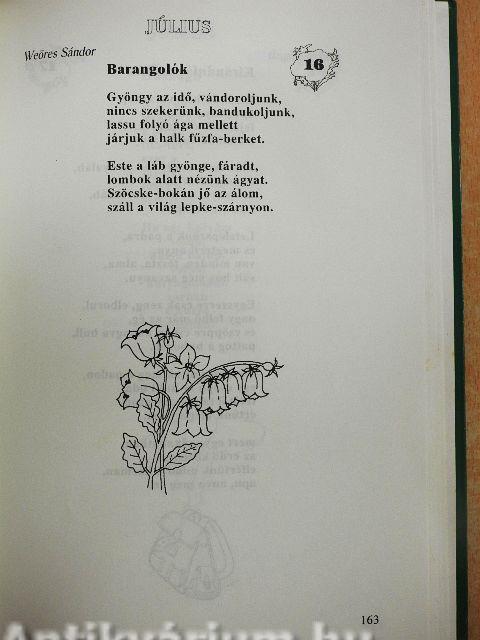 JÚLIUS
Weöres Sándor
16
Barangolók
Gyöngy az idő, vándoroljunk,
nincs szekerünk, bandukoljunk,
lassu folyó ága mellett
járjuk a halk fűzfa-berket.
Este a láb gyönge, fáradt,
lombok alatt nézünk ágyat.
Szöcske-bokán jő az álom,
száll a világ lepke-szárnyon.
163
Antikvárium.hu